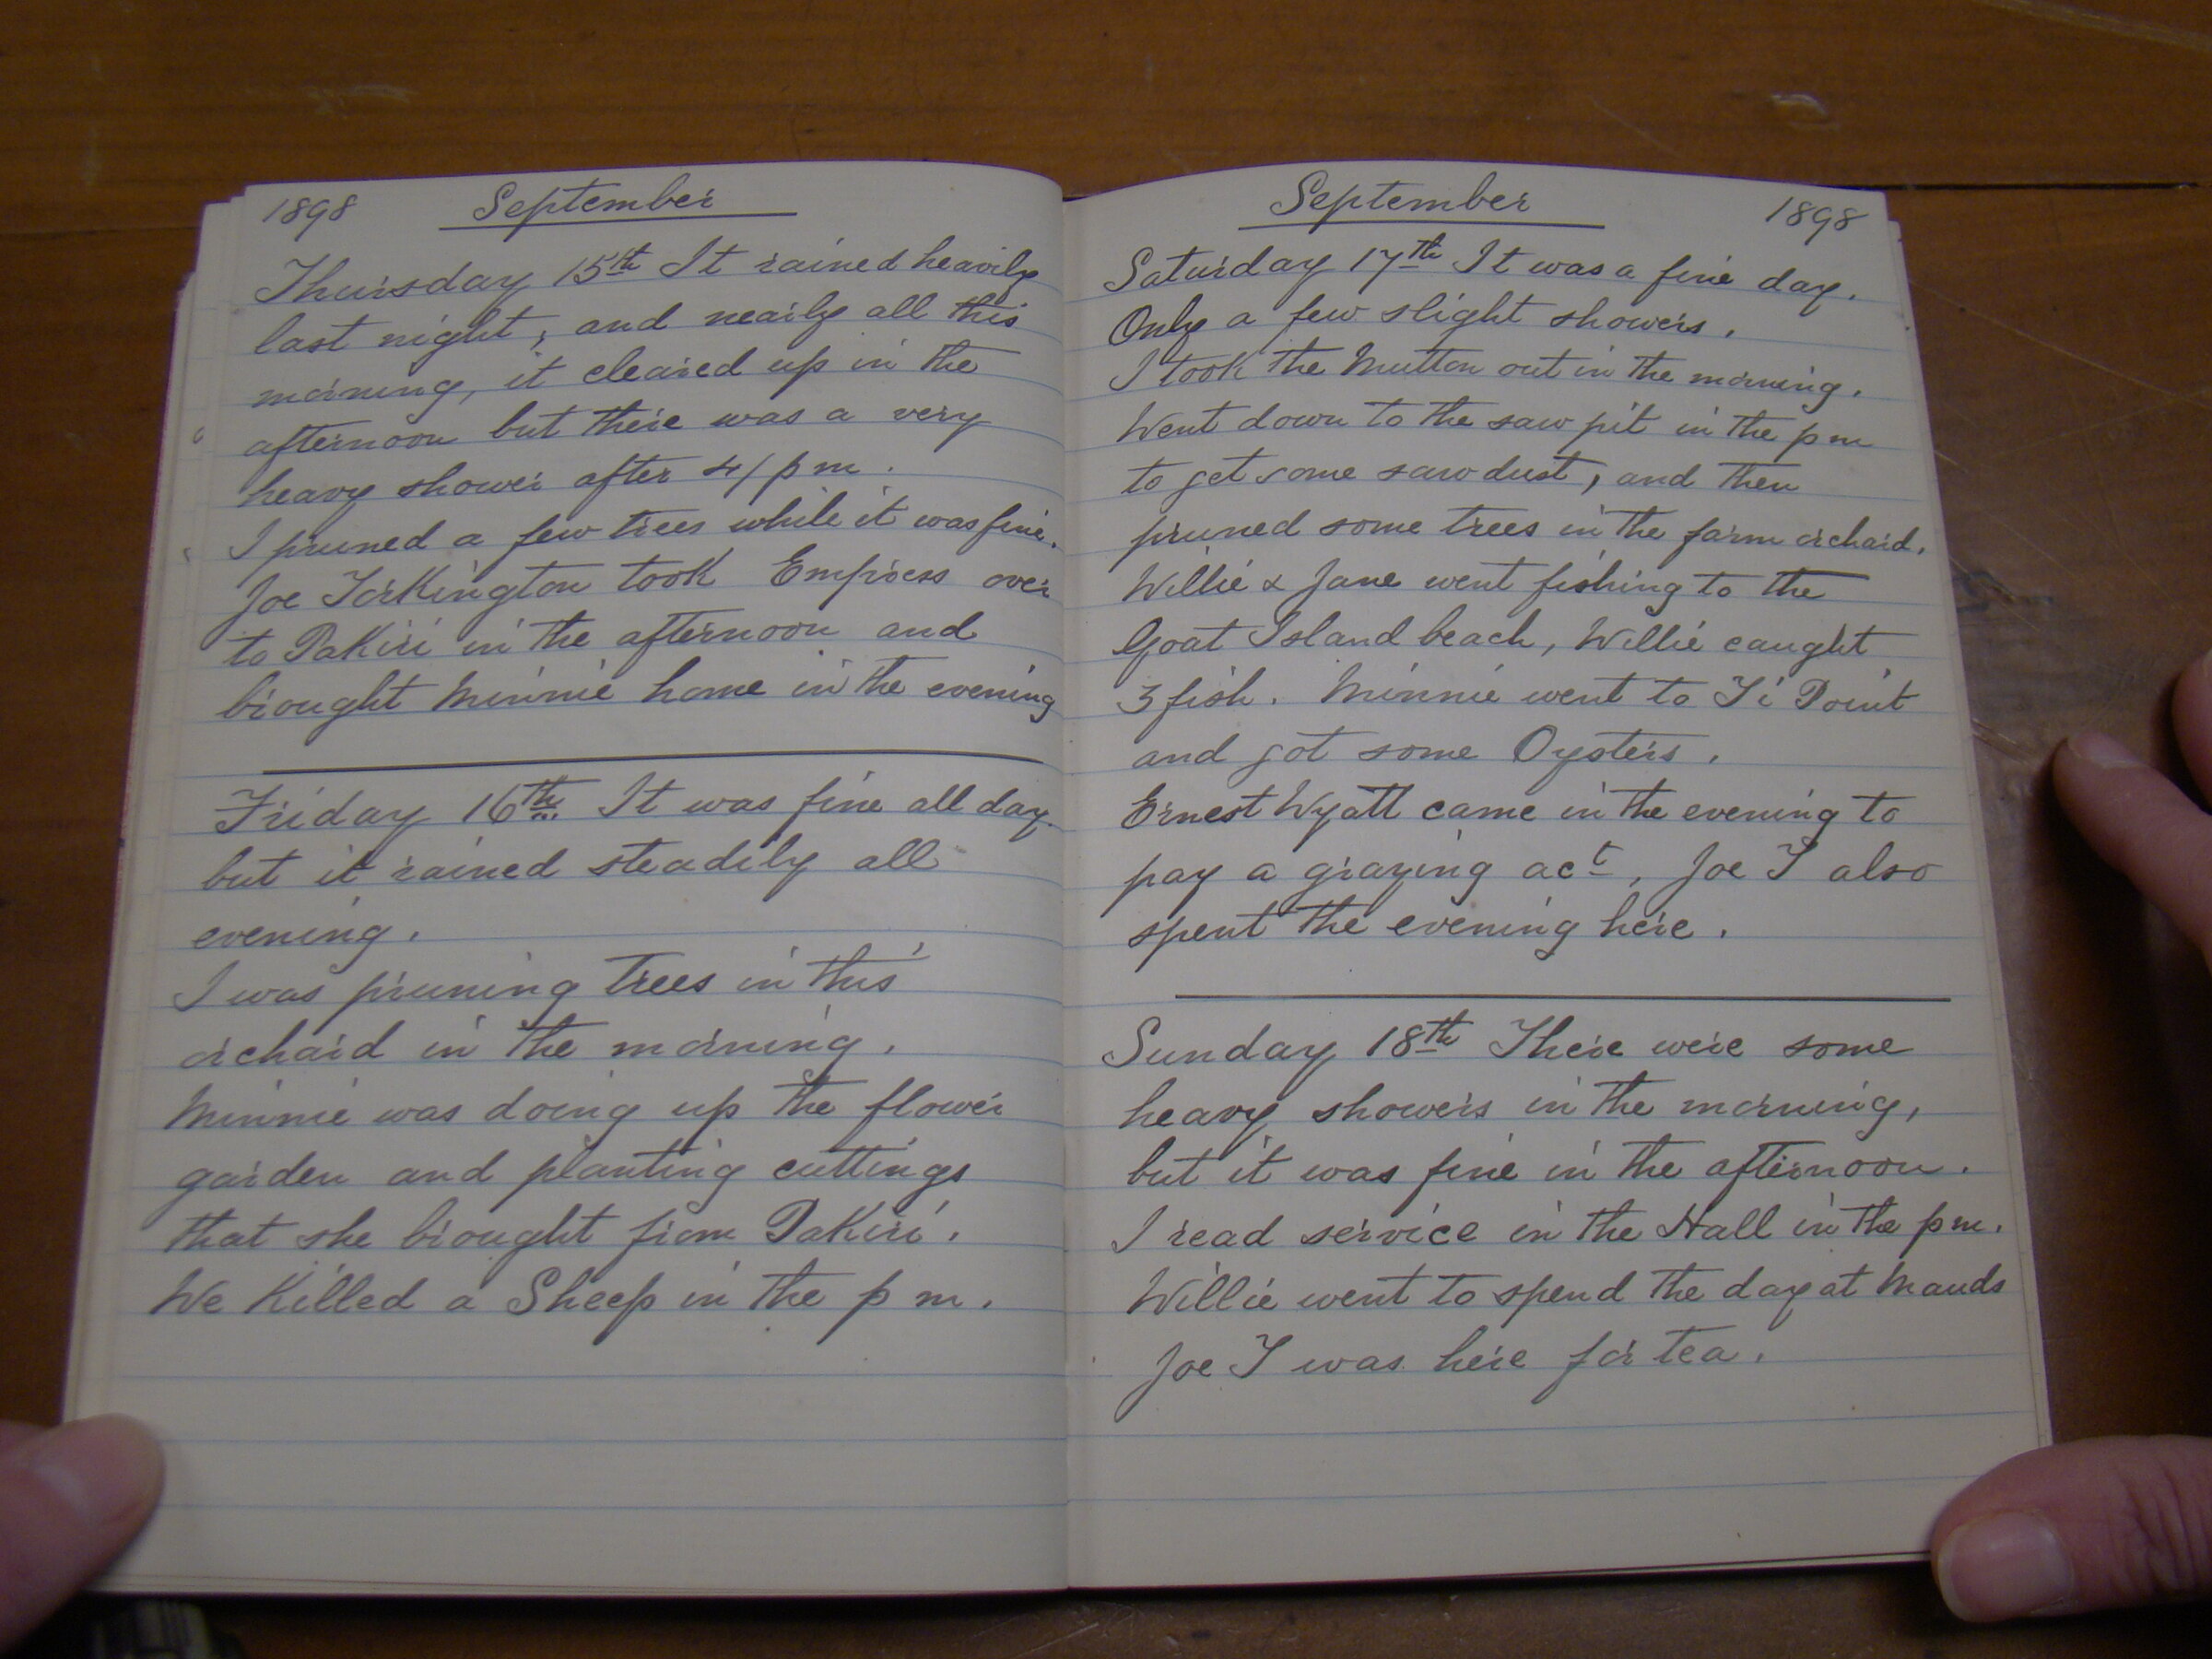 1898 September
Thursday 15th It rained heavily
last night, and nearly all this
morning, it cleared up in the
afternoon but there was a very
heavy shower after 4/pm.
I pruned a few trees while it was fine.
Joe Torkington took Empress over
to Pakiri in the afternoon and
brought Minnie home in the evening
Friday 16th It was fine all day.
but it rained steadily all
evening.
I was pruning trees in this
orchard in the morning.
Minnie was doing up the flower
garden and planting cuttings
that she brought from Pakiri.
We Killed a Sheep in the pm.
September 1898
Saturday 17th It was a fine day.
Only a few slight showers.
I took the Mutton out in the morning.
Went down to the saw pit in the pm
to get some sawdust, and then
pruned some trees in the farm orchard.
Willie & Jane went fishing to the
Goat Island beach, Willie caught
3 fish. Minnie went to Ti Point
and got some Oysters.
Ernest Wyatt came in the evening to
pay a grazing act, Joe T also
spent the evening here.
Sunday 18th There were some
heavy showers in the morning,
but it was fine in the afternoon.
I read service in the Hall in the pm.
Willie went to spend the day at Mauds
Joe T was here for tea.